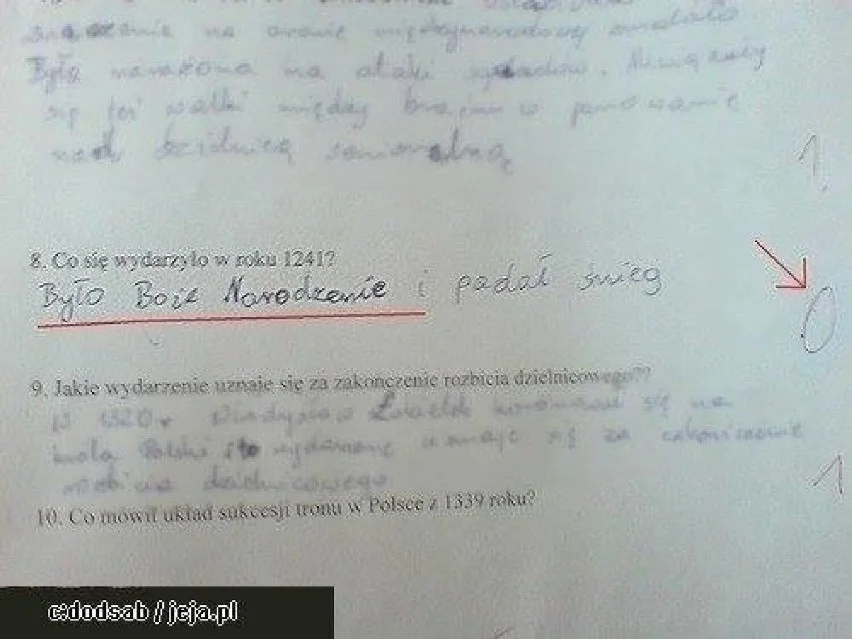 znaczenie na arenie międzynarodowej
Była narażona na ataki. Nasilały
się też walki między braćmi o panowanie
nad dzielnicą senioralną
1
8. Co się wydarzyło w roku 1241?
Było Boże Narodzenie i padał śnieg
0
9. Jakie wydarzenie uznaje się za zakończenie rozbicia dzielnicowego??
W 1320 r Władysław Łokietek koronował się na
króla Polski i to wydarzenie uznaje się za zakończenie
rozbicia dzielnicowego
1
10. Co mówił układ sukcesji tronu w Polsce z 1339 roku?
c:dodsab / jeja.pl